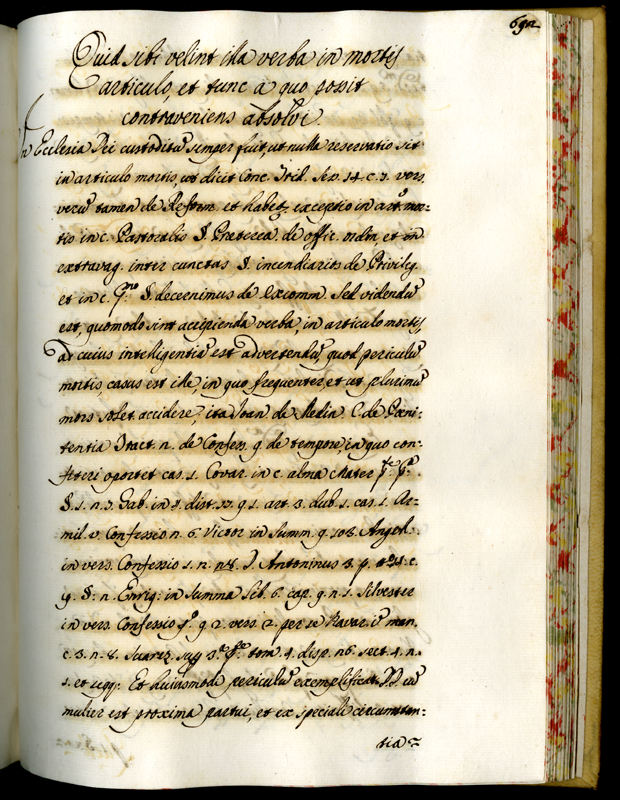 692
Quid sibi velint illa verba in mortis
articulo, et tunc a quo possit
contraveniens absolvi.
In Ecclesia Dei custoditũ semper fuit, ut nulla reservatio sit
in articulo mortis, ut dicit Conc. Trid. Ses. 14. c. 7. vers.
verũ tamen de Reform. et habet exceptio in art. mor:
tis in c. Pastoralis §. Praeterea. de offic. ordin. et in
extravag. inter cunctas §. incendiariis de Privileg.
et in c. §. decernimus de Excomm. Sed videndũ
est, quomodo sint accipienda verba, in articulo mortis,
ad cuius intelligentiã est advertendũ, quod periculũ
mortis, casus est ille, in quo frequenter, et ut plurimũ
mors solet accidere, ita Joan. de Medin. C. de Poeni:
tentia Tract. n. de Confess. q. de tempore, in quo con:
fiteri oportet cas. 1. Covar. in c. alma Mater
§. 1. n. Gab. in 4. dist. q. 1. art. 3. dub. 1. cas. 1. Ar:
mil. v. Confessio n. 6. Victor. in Summ. q. 108. Angel.
in vers. Confessio 1. n. D. Antoninus 3. p. c.
§. n. Enriq: in Summa lib. 6. cap. n. 1. Silvester
in vers. Confessio q. 2. vers. 2. per se Navar. in man.
c. n. 8. Suarez tom. 4. disp. 26. sect. 4. n.
1. et seqq: Et huiusmodi periculũ exemplificat. DD. cũ
mulier est proxima partui, et ex speciali circumstan:
tia